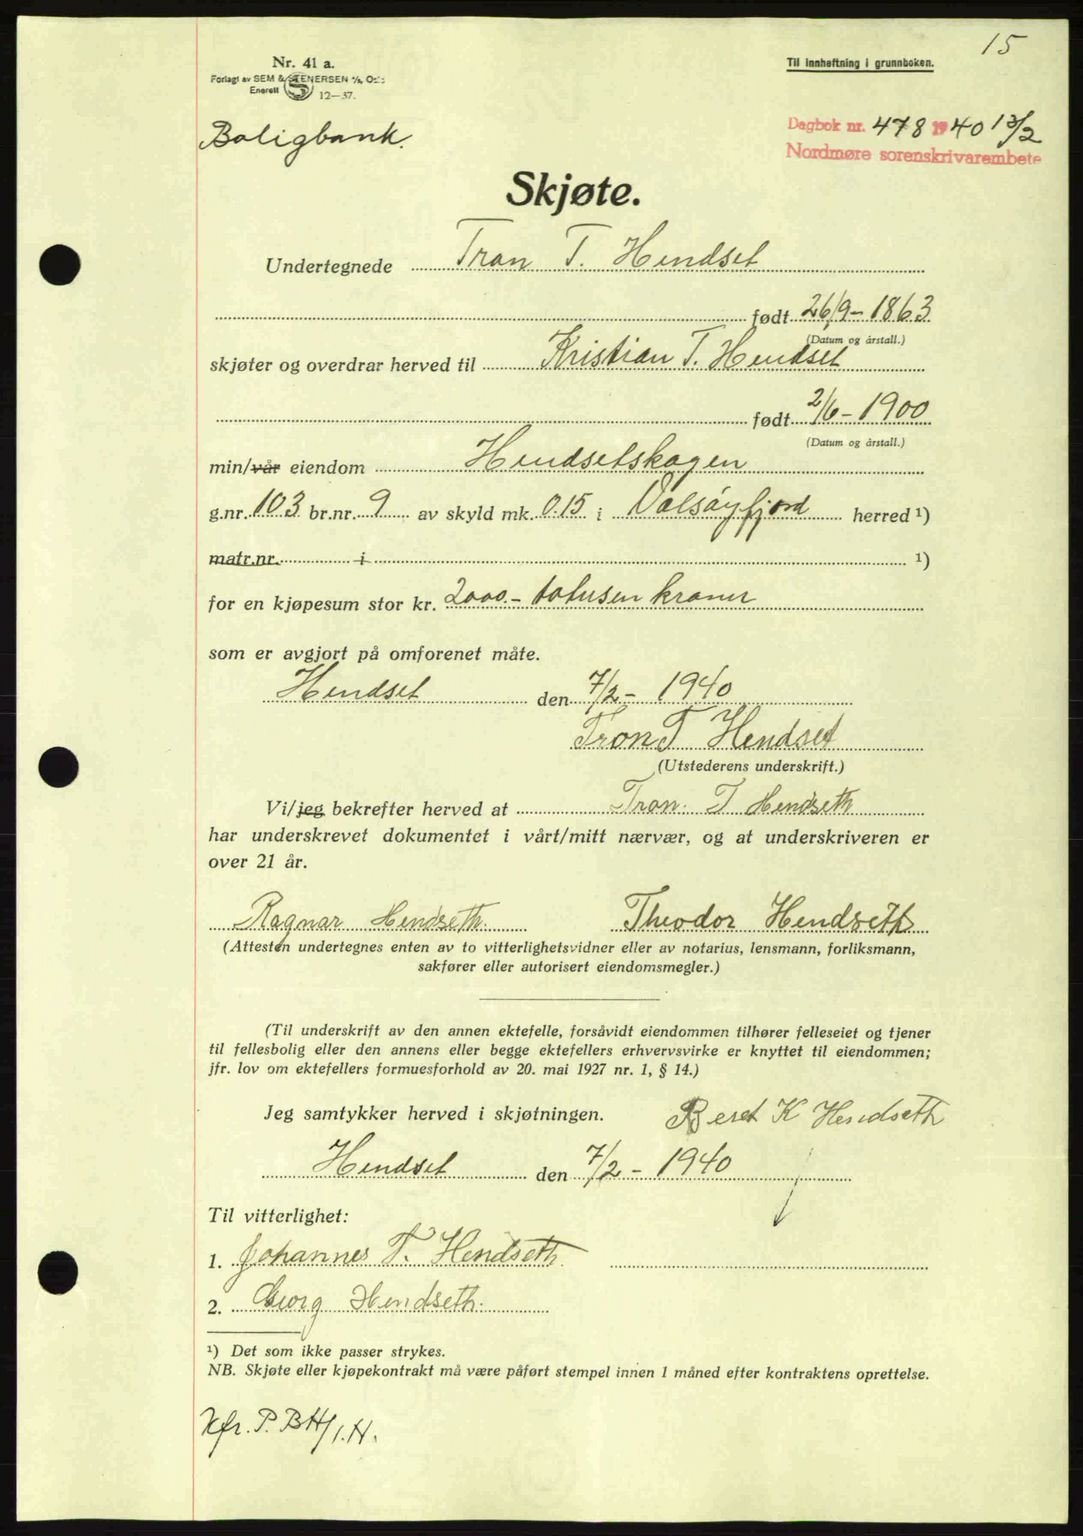 15
Nr. 41 a.
Forlagt av SEM & STENERSEN A/S, Oslo
Enerett 12—37.
Til innheftning i grunnboken.
Boligbank.
Dagbok nr. 478 1940 13/2
Nordmøre sorenskrivarembete
Skjøte.
Undertegnede Tron T. Hendset
født 26/9 - 1863
(Datum og årstall.)
skjøter og overdrar herved til Kristian T. Hendset
født 2/6 - 1900
(Datum og årstall.)
min/vår eiendom Hendsetskogen
g.nr. 103 br.nr. 9 av skyld mk. 0.15 i Valsøyfjord herred ¹)
matr.nr. i ¹)
for en kjøpesum stor kr. 2000.- totusen kroner
som er avgjort på omforenet måte.
Hendset den 7/2 - 1940
Tron T Hendset
(Utstederens underskrift.)
Vi/jeg bekrefter herved at Tron. T Hendseth
har underskrevet dokumentet i vårt/mitt nærvær, og at underskriveren er
over 21 år.
Ragnar Hendseth. Theodor Hendseth
(Attesten undertegnes enten av to vitterlighetsvidner eller av notarius, lensmann, forliksmann,
sakfører eller autorisert eiendomsmegler.)
(Til underskrift av den annen ektefelle, forsåvidt eiendommen tilhører felleseiet og tjener
til fellesbolig eller den annens eller begge ektefellers erhvervsvirke er knyttet til eiendommen;
jfr. lov om ektefellers formuesforhold av 20. mai 1927 nr. 1, § 14.)
Jeg samtykker herved i skjøtningen. Beret K Hendseth
Hendset den 7/2 - 1940
Til vitterlighet:
1. Johannes T. Hendseth
2. Georg Hendseth.
¹) Det som ikke passer strykes.
NB. Skjøte eller kjøpekontrakt må være påført stempel innen 1 måned efter kontraktens oprettelse.
P. BH/I.H.